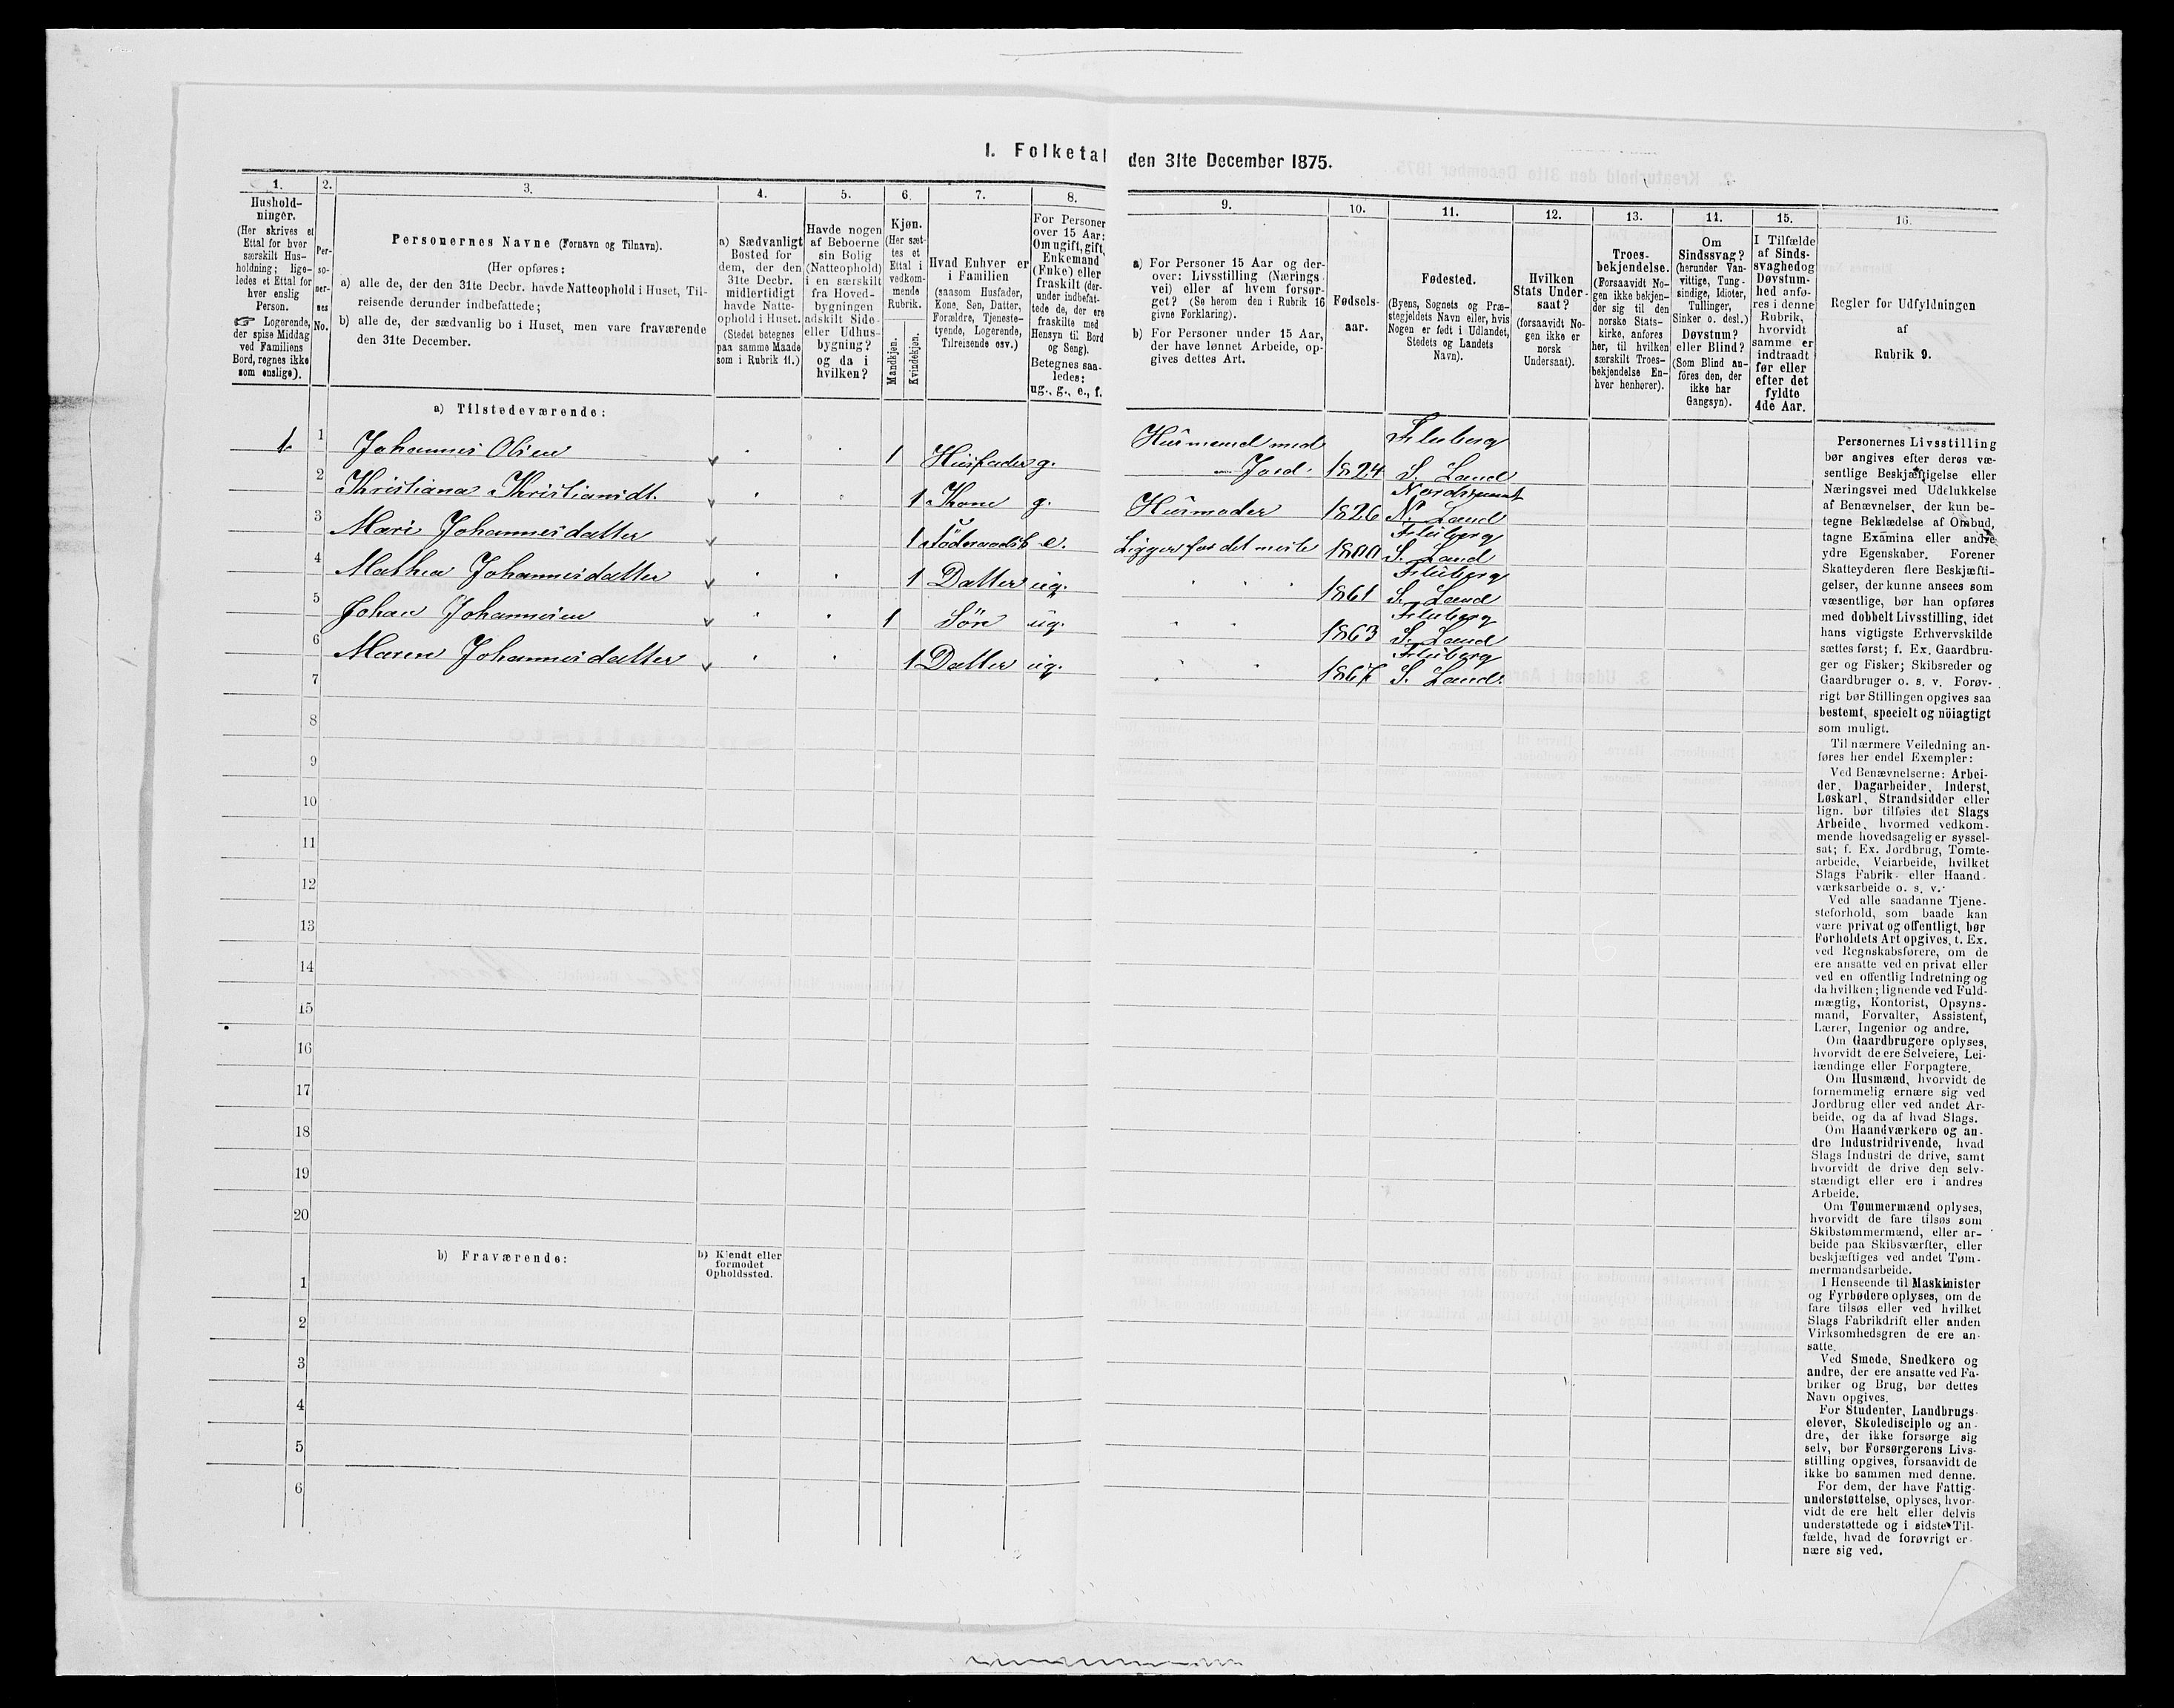 I. Folketal den 31te December 1875.
1.
2.
3.
4.
5.
6.
7.
8.
9.
10.
11.
12.
13.
14.
15.
16.
Hushold-
ninger.
(Her skrives et
Ettal for hver
særskilt Hus-
holdning; lige-
ledes et Ettal for
hver enslig
Person.
☞ Logerende,
der spise Middag
ved Familiens
Bord, regnes ikke
som enslige).
Per-
so-
ner-
nes
No.
Personernes Navne (Fornavn og Tilnavn).
(Her opføres:
a) alle de, der den 31te Decbr. havde Natteophold i Huset, Til-
reisende derunder indbefattede;
b) alle de, der sædvanlig bo i Huset, men vare fraværende
den 31te December.
a) Sædvanligt
Bosted for
dem, der den
31te Decbr.
midlertidigt
havde Natte-
ophold i Huset.
(Stedet betegnes
paa samme Maade
som i Rubrik 11.)
Havde nogen
af Beboerne
sin Bolig
(Natteophold)
i en særskilt
fra Hoved-
bygningen
adskilt Side-
eller Udhus-
bygning?
og da i
hvilken?
Kjøn.
(Her sæt-
tes et
Ettal i
vedkom-
mende
Rubrik.
Mandkjøn.
Kvindekjøn.
Hvad Enhver er
i Familien
(saasom Husfader,
Kone, Søn, Datter,
Forældre, Tjeneste-
tyende, Logerende,
Tilreisende osv.)
For Personer
over 15 Aar:
Om ugift, gift,
Enkemand
(Enke) eller
fraskilt (der-
under indbefat-
tede de, der ere
fraskilte med
Hensyn til Bord
og Seng).
Betegnes saa-
ledes:
ug., g., e., f.
a) For Personer 15 Aar og der-
over: Livsstilling (Nærings-
vei) eller af hvem forsør-
get? (Se herom den i Rubrik 16
givne Forklaring).
b) For Personer under 15 Aar,
der have lønnet Arbeide, op-
gives dettes Art.
Fødsels-
aar.
Fødested.
(Byens, Sognets og Præ-
stegjeldets Navn eller, hvis
Nogen er født i Udlandet,
Stedets og Landets
Navn).
Hvilken
Stats Under-
saat?
(forsaavidt No-
gen ikke er
norsk
Undersaat).
Troes-
bekjendelse.
(Forsaavidt No-
gen ikke bekjen-
der sig til den
norske Stats-
kirke, anføres
her, til hvilken
særskilt Troes-
bekjendelse En-
hver henhører).
Om
Sindssvag?
(herunder Van-
vittige, Tung-
sindige, Idioter,
Tullinger,
Sinker o. desl.)
Døvstum?
eller Blind?
(Som Blind an-
føres den, der
ikke har
Gangsyn).
I Tilfælde
af Sinds-
svaghed og
Døvstum-
hed anfø-
res i denne
Rubrik,
hvorvidt
samme er
indtraadt
før eller
efter det
fyldte
4de Aar.
Regler for Udfyldningen
af
Rubrik 9.
a) Tilstedeværende:
1. 1 Johannes Olsen 1 Husfader g. Husmand med Jord. 1824 Fluberg S. Land
2 Kristiana Kristiansdt. 1 Kone g. Husmoder 1826 N. Land
3 Mari Johannesdatter 1 e. Ligger for det meste 1800 Fluberg S. Land
4 Mathea Johannesdatter 1 Datter ug. 1861 Fluberg S. Land
5 Johan Johannesen 1 Søn ug. 1863 Fluberg S. Land
6 Maren Johannesdatter 1 Datter ug. 1867 Fluberg S. Land.
7
8
9
10
11
12
13
14
15
16
17
18
19
20
b) Fraværende:
b) Kjendt eller
formodet
Opholdssted.
1
2
3
4
5
6
Personernes Livsstilling
bør angives efter deres væ-
sentlige Beskjæftigelse eller
Næringsvei med Udelukkelse
af Benævnelser, der kun be-
tegne Beklædelse af Ombud,
tagne Examina eller andre
ydre Egenskaber. Forener
Skatteyderen flere Beskjæfti-
gelser, der kunne ansees som
væsentlige, bør han opføres
med dobbelt Livsstilling, idet
hans vigtigste Erhvervskilde
sættes først; f. Ex. Gaardbru-
ger og Fisker; Skibsreder og
Gaardbruger o. s. v. Forøv-
rigt bør Stillingen opgives saa
bestemt, specielt og nöiagtigt
som muligt.
Til nærmere Veiledning an-
føres her endel Exempler:
Ved Benævnelserne: Arbei-
der, Dagarbeider, Inderst,
Løskarl, Strandsidder eller
lign. bør tilføies det Slags
Arbeide, hvormed vedkom-
mende hovedsagelig er syssel-
sat; f. Ex. Jordbrug, Tomte-
arbeide, Veiarbeide, hvilket
Slags Fabrik- eller Haand-
værksarbeide o. s. v.
Ved alle saadanne Tjene-
steforhold, som baade kan
være privat og offentligt, bør
Forholdets Art opgives, t. Ex.
ved Regnskabsførere, om de
ere ansatte ved en privat eller
ved en offentlig Indretning og
da hvilken; lignende ved Fuld-
mægtig, Kontorist, Opsyns-
mand, Forvalter, Assistent,
Lærer, Ingeniør og andre.
Om Gaardbrugere oplyses,
hvorvidt de ere Selveiere, Lei-
lændinge eller Forpagtere.
Om Husmænd, hvorvidt de
fornemmelig ernære sig ved
Jordbrug eller ved andet Ar-
beide, og da af hvad Slags.
Om Haandværkere og an-
dre Industridrivende, hvad
Slags Industri de drive, samt
hvorvidt de drive den selv-
stændigt eller ere i andres
Arbeide.
Om Tømmermænd oplyses,
hvorvidt de fare tilsøs som
Skibstømmermænd, eller ar-
beide paa Skibsværfter, eller
beskjæftiges ved andet Tøm-
mermandsarbeide.
I Henseende til Maskinister
og Fyrbødere oplyses, om de
fare tilsøs eller ved hvilket
Slags Fabrikdrift eller anden
Virksomhedsgren de ere an-
satte.
Ved Smede, Snedkere og
andre, der ere ansatte ved Fa-
briker og Brug, bør dettes
Navn opgives.
For Studenter, Landbrugs-
elever, Skoledisciple og an-
dre, der ikke forsørge sig
selv, bør Forsørgerens Livs-
stilling opgives, forsaavidt de
ikke bo sammen med denne.
For dem, der have Fattig-
understøttelse, oplyses, hvor-
vidt de ere helt eller delvis
understøttede og i sidste Til-
fælde, hvad de forøvrigt er-
nære sig ved.